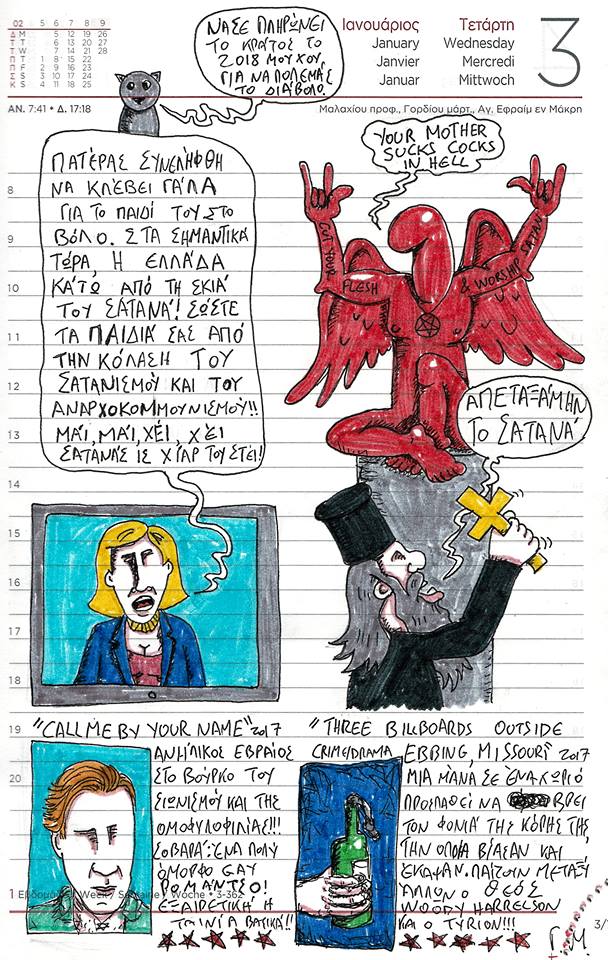 02 M 5 12 19 26
T 6 13 20 27
T 7 14 21 28
Π T 1 8 15 22
Π F 2 9 16 23
Σ S 3 10 17 24
Κ S 4 11 18 25
Ιανουάριος Τετάρτη
January Wednesday
Janvier Mercredi
Januar Mittwoch
3
ΑΝ. 7:41 • Δ. 17:18
Μαλαχίου προφ., Γορδίου μάρτ., Αγ. Εφραίμ εν Μάκρη
ΝΑ ΣΕ ΠΛΗΡΩΝΕΙ
ΤΟ ΚΡΑΤΟΣ ΤΟ
2018 ΜΟΥΧΟΥ
ΓΙΑ ΝΑ ΠΟΛΕΜΑΣ
ΤΟ ΔΙΑΒΟΛΟ!
ΠΑΤΕΡΑΣ ΣΥΝΕΛΗΦΘΗ
ΝΑ ΚΛΕΒΕΙ ΓΑΛΑ
ΓΙΑ ΤΟ ΠΑΙΔΙ ΤΟΥ ΣΤΟ
ΒΟΛΟ. ΣΤΑ ΣΗΜΑΝΤΙΚΑ
ΤΩΡΑ, Η ΕΛΛΑΔΑ
ΚΑΤΩ ΑΠΟ ΤΗ ΣΚΙΑ
ΤΟΥ ΣΑΤΑΝΑ! ΣΩΣΤΕ
ΤΑ ΠΑΙΔΙΑ ΣΑΣ ΑΠΟ
ΤΗΝ ΚΟΛΑΣΗ ΤΟΥ
ΣΑΤΑΝΙΣΜΟΥ ΚΑΙ ΤΟΥ
ΑΝΑΡΧΟΚΟΜΜΟΥΝΙΣΜΟΥ!!
ΜΑΪ, ΜΑΪ, ΧΕΪ, ΧΕΪ
ΣΑΤΑΝΑΣ ΙΣ ΧΙΑΡ ΤΟΥ ΣΤΕΪ!
YOUR MOTHER
SUCKS COCKS
IN HELL
CUT YOUR FLESH & WORSHIP SATAN
ΑΠΕΤΑΞΑΜΗΝ
ΤΟ ΣΑΤΑΝΑ
8
9
10
11
12
13
14
15
16
17
18
19
20
"CALL ME BY YOUR NAME" 2017
ΑΝΗΛΙΚΟΣ ΕΒΡΑΙΟΣ
ΣΤΟ ΒΟΥΡΚΟ ΤΟΥ
ΣΙΩΝΙΣΜΟΥ ΚΑΙ ΤΗΣ
ΟΜΟΦΥΛΟΦΙΛΙΑΣ!!!
ΣΟΒΑΡΑ: ΕΝΑ ΠΟΛΥ
ΟΜΟΡΦΟ GAY
ΡΟΜΑΝΤΣΟ!
ΕΞΑΙΡΕΤΙΚΗ Η
ΤΑΙΝΙΑ ΒΑΣΙΚΑ!!
"THREE BILLBOARDS OUTSIDE
CRIME/DRAMA EBBING, MISSOURI 2017
ΜΙΑ ΜΑΝΑ ΣΕ ΕΝΑ ΧΩΡΙΟ
ΠΡΟΣΠΑΘΕΙ ΝΑ ΒΡΕΙ
ΤΟΝ ΦΟΝΙΑ ΤΗΣ ΚΟΡΗΣ ΤΗΣ
ΤΗΝ ΟΠΟΙΑ ΒΙΑΣΑΝ ΚΑΙ
ΕΚΑΨΑΝ. ΠΑΙΖΟΥΝ ΜΕΤΑΞΥ
ΑΛΛΩΝ Ο ΘΕΟΣ
WOODY HARRELSON
ΚΑΙ Ο TYRION!!!
1 Εβδομάδα Week Semaine Woche • 3-362
3/
Γ.Μ.